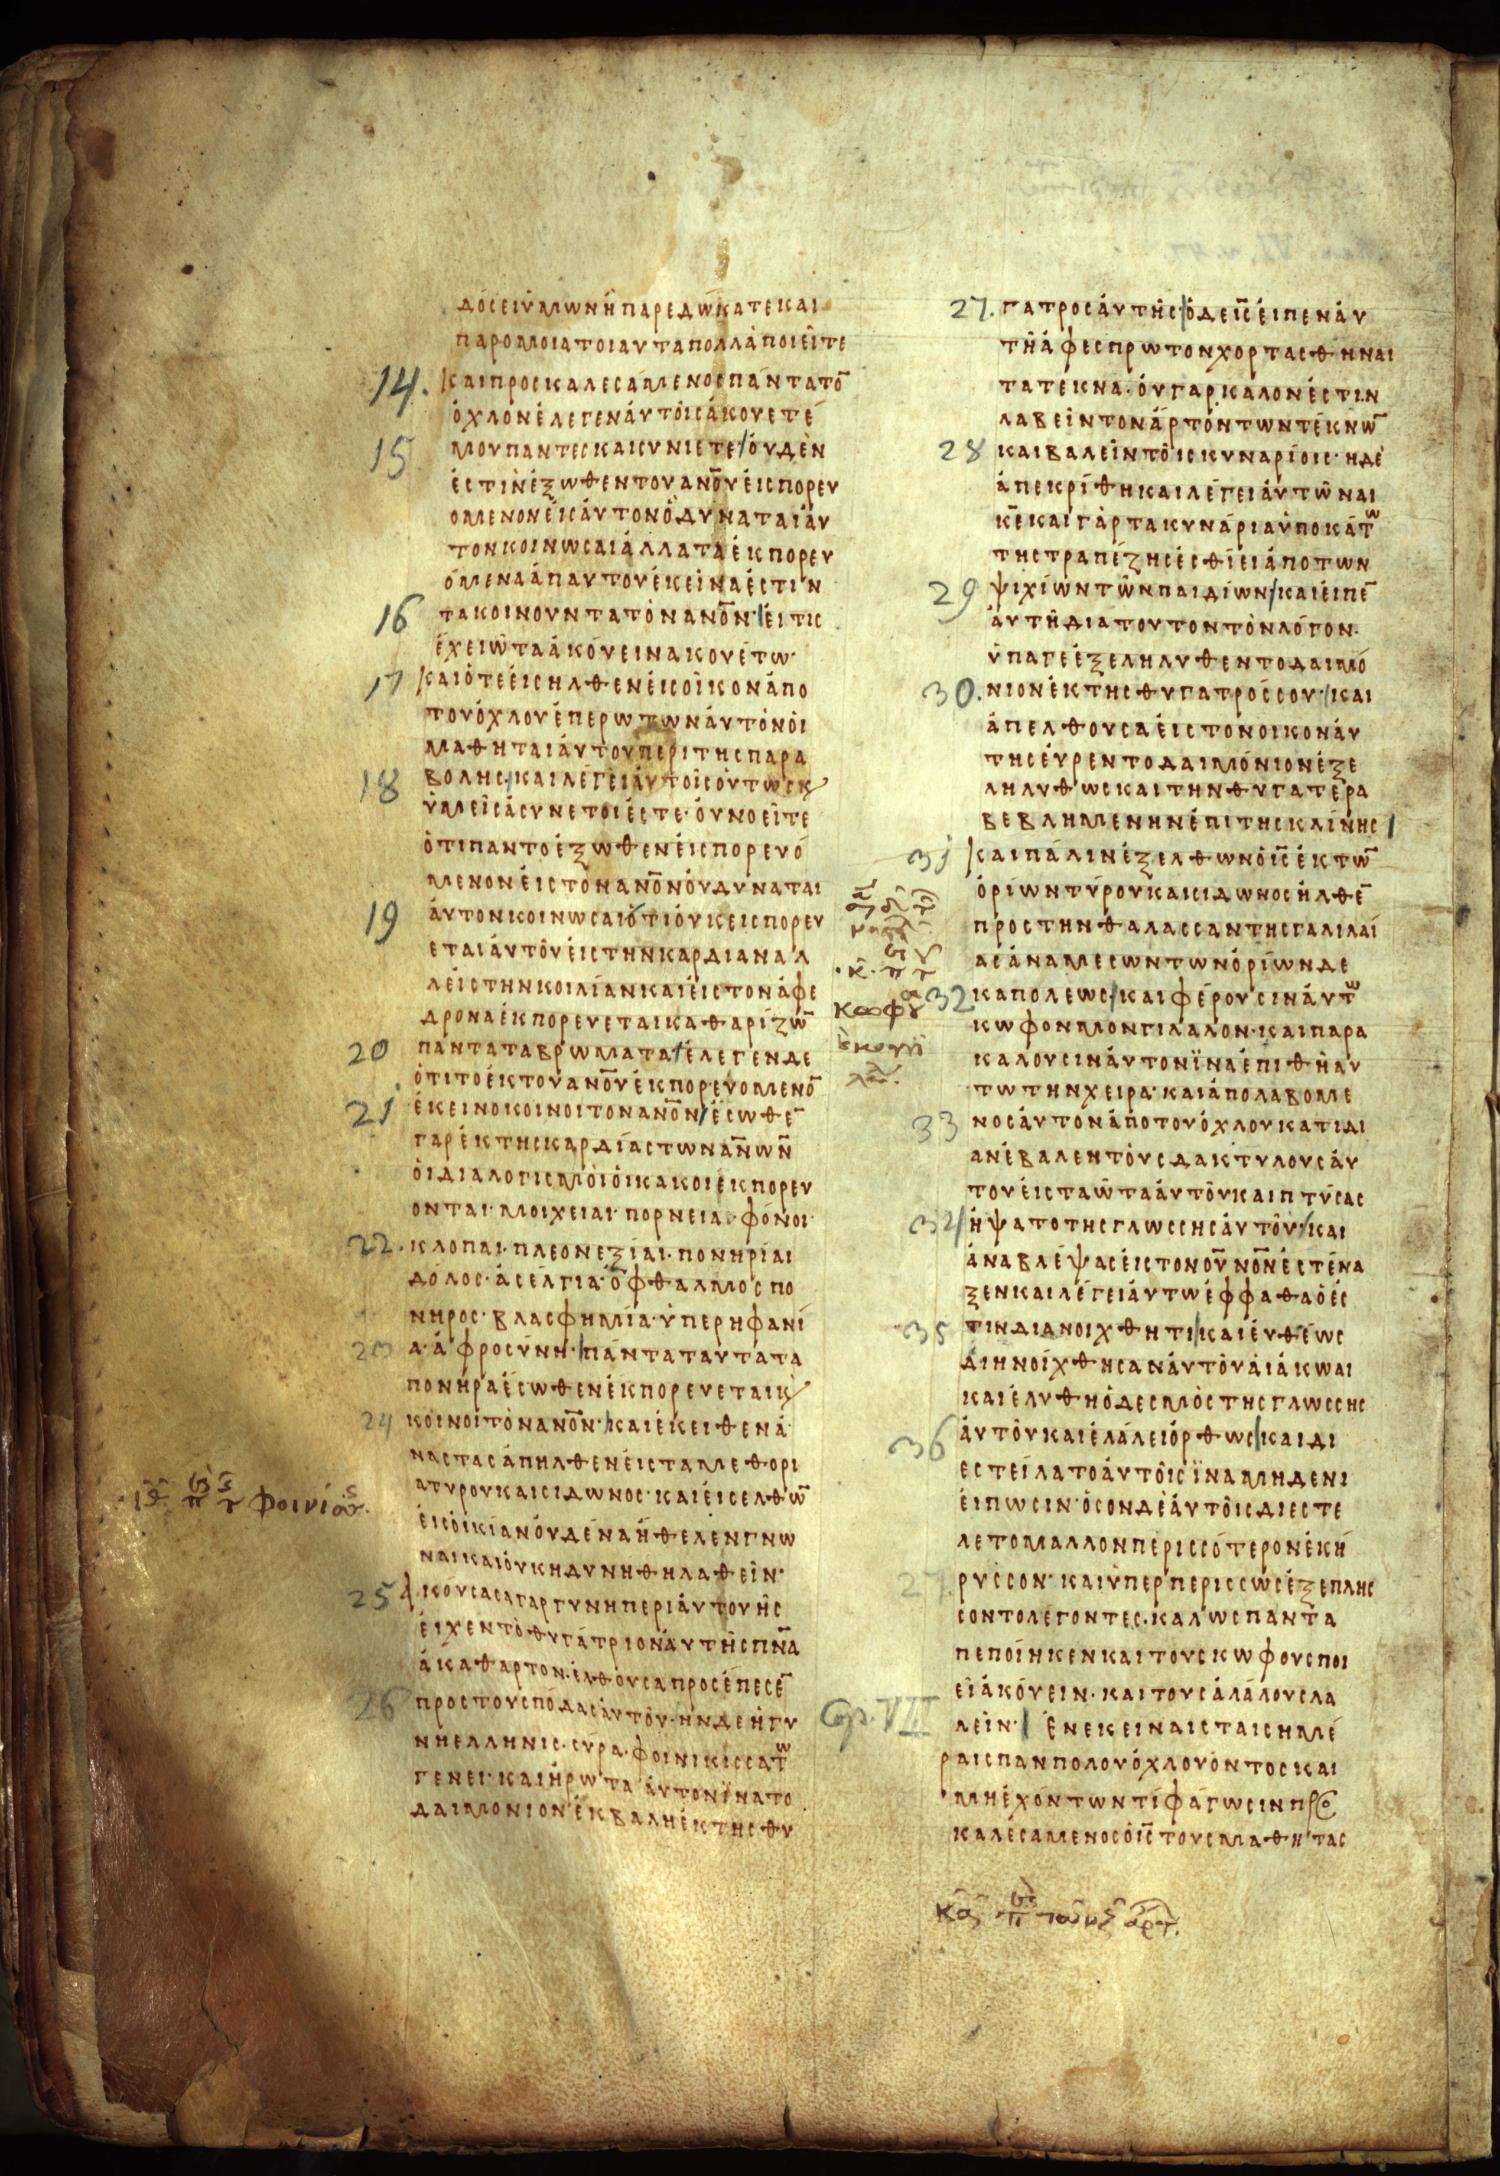 δόσει ὑμῶν ἡ παρεδώκατε και
παρομοια τοιαυτα πολλὰ ποιεῖτε
14. και προσκαλεσάμενος πάντα το̅
ὄχλον ἔλεγεν ἀυτοῖς ἀκούετέ
15 μου παντες και συνιετε / ὀυδὲν
ἐστιν ἔξωθεν του ανο̅υ ἐισπορευ
ομενον ἐις ἀυτον ὃ δυναται ἀυ
τον κοινωσαι ἀλλα τα ἐκπορευ
όμενα ἀπ αυτου ἐκεῖνα ἐστιν
16 τα κοινουντα τὸν ανο̅ν· / ἐι τις
ἔχει ὦτα ἀκόυειν ακουέτω·
17 και ὁτε ἐισηλθεν ἐις οἶκον ἀπο
του ὄχλου ἐπερωτων ἀυτὸν ὁι
μαθηται ἀυτου περι της παρα
18 βολης· / και λέγει ἀυτοῖς ὁυτως κ
ὑμεῖς ἀσυνετοι ἐστε· ὀυ νοεῖτε
ὁτι παν το ἐξωθεν ἐισπορευό
μενον ἐις τον ανο̅ν ὀυ δυναται
19 ἀυτον κοινωσαι ὁτι ὀυκ εισπορευ
εται ἀυτοῦ ἐις την καρδιαν αλ
λ ἐις την κοιλίαν και ἐις τον ἀφε
δρονα ἐκπορευεται καθαρίζω̅
20 πάντα τα βρωματα / ἔλεγεν δε
ὁτι το ἐκ του ανο̅υ ἐκπορευομενο̅
21 ἐκεινο κοινοι τον ανο̅ν / ἐσωθε̅
γαρ ἐκ της καρδίας των αν̅ων̅
ὁι διαλογισμοὶ ὁι κακοι ἐκπορευ
ονται· μοιχειαι· πορνειαι· φόνοι·
22. κλοπαι· πλεονεξίαι· πονηρίαι
δόλος· ἀσέλγια· ὀφθαλμος πο
νηρος· βλασφημία· ὑπερηφανί
23 α· ἀφροσύνη· / πάντα ταυτα τα
πονηρα ἐσωθεν ἐκπορευεται κ
24 κοινοῖ τὸν ανο̅ν· / και ἐκειθεν ἀ
ναστας ἀπηλθεν ἐις τα μεθορι
α τυρου και σιδωνος· και ἐισελθω̅
ἐις ὀικίαν ὀυδένα ἤθελεν γνω
ναι και ὀυκ ηδυνηθη λαθεῖν·
25 ἀκούσασα γαρ γυνη περι ἀυτου ἧς
ἐιχεν τὸ θυγάτριον ἀυτῆς πν̅α
ἀκαθαρτον· ἐλθουσα προσέπεσε̅
26 προς τους πόδας ἀυτοῦ· ην δε ἡ γυ
νη ελληνις· σύρα· φοινικισσα τω
γενει· και ἠρωτα ἀυτον ἵνα το
δαιμονιον ἐκβαλη ἐκ της θυ
φοινίσ
κωφου
27. γατρος ἀυτῆς· / ὁ δε ις̅ ἐιπεν ἀυ
τῆ ἄφες πρωτον χορτασθηναι
τα τεκνα· ὀυ γαρ καλον ἐστιν
λαβεῖν τον ἄρτον των τέκνω̅
28 και βαλεῖν τοῖς κυναρίοις· η δὲ
ἀπεκρίθη και λέγει ἀυτῶ ναι
κε̅ και γὰρ τα κυνάρια ὑποκάτω
της τραπέζης ἐσθίει ἀπο των
29 ψιχίων τῶν παιδίων / και ἐιπε̅
ἀυτῆ δια τουτον τὸν λόγον·
ὑπαγε ἐξεληλυθεν το δαιμό
30. νιον ἐκ της θυγατρός σου· / και
ἀπελθουσα ἐις τον οικον ἀυ
της ἑυρεν το δαιμόνιον ἐξε
ληλυθως και την θυγατέρα
βεβλημενην ἐπι της κλίνης /
31 και πάλιν ἐξελθων ὁ ις̅ ἐκ τω̅
ὁρίων τύρου και σιδωνος ἠλθε̅
προς την θαλασσαν της γαλιλαί
ας ἀναμεσων των ὁρίων δε
32 καπολεως / και φέρουσιν ἀυτω
κωφον μογγιλαλον· και παρα
καλουσιν ἀυτον ἵνα ἐπιθῆ αυ
τω την χειρα· και ἀπολαβομε
33 νος ἀυτον ἀπο του ὄχλου κατιδι
αν ἐβαλεν τὸυς δακτυλους ἀυ
του ἐις τα ὦτα ἀυτοῦ και πτύσας
34 ἡψατο της γλωσσης ἀυτοῦ· / και
ἀναβλέψας ἐις τον ου̅νο̅ν ἐστένα
ξεν και λέγει ἀυτω ἐφφαθα ὁ ἐσ
35 τιν διανοιχθητι / και ἐυθέως
διηνοίχθησαν ἀυτοῦ ἁι ἀκωαι
και ἐλυθη ὁ δεσμὸς της γλωσσης
36 ἀυτοῦ και ἐλάλει ὀρθως / και δι
εστείλατο ἀυτοῖς ἵνα μηδενι
ἐιπωσιν· ὁσον δὲ ἀυτοῖς διεστε
λετο μαλλον περισσότερον ἐκή
27. ρυσσον· και ὑπερπερισσως ἐξεπλησ
σοντο λέγοντες· καλως παντα
πεποίηκεν και τους κωφους ποι
εῖ ἀκόυειν· και τους ἀλάλους λα
Cap. VIII λεῖν· / Ἐν εκειναις ταις ημέ
ραις παμπολου ὄχλου ὄντος και
μη ἐχόντων τί φάγωσιν προσ
καλεσαμενος ὁ ις̅ τους μαθητας